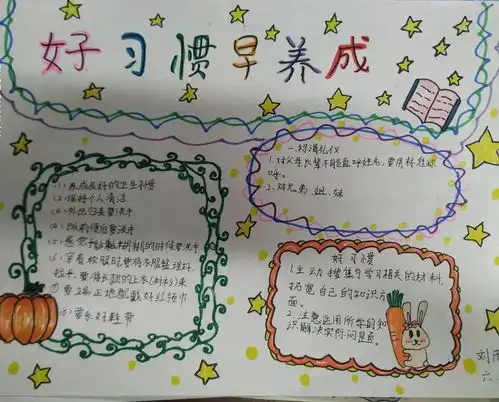 好习惯早养成
(1)养成良好的卫生习惯
(2)保持个人清洁
(3)外出归来要洗手
(4)饭前便后要洗手
(5)感觉手
的时候要洗手
(6)穿着校服时要将衣服整理好,
拉牛要将长款的上衣
来
(7)要端正地佩戴好红领巾
(8)要系好鞋带
一.称谓礼仪
1.对父母长辈不能直呼姓名,要用标准称
呼。
2.对兄、弟、姐、妹
好习惯
1.主动搜集与学习相关的材料,
拓宽自己的知识方
面。
2.注意运用所学的知
识解决实际问题。
刘
六